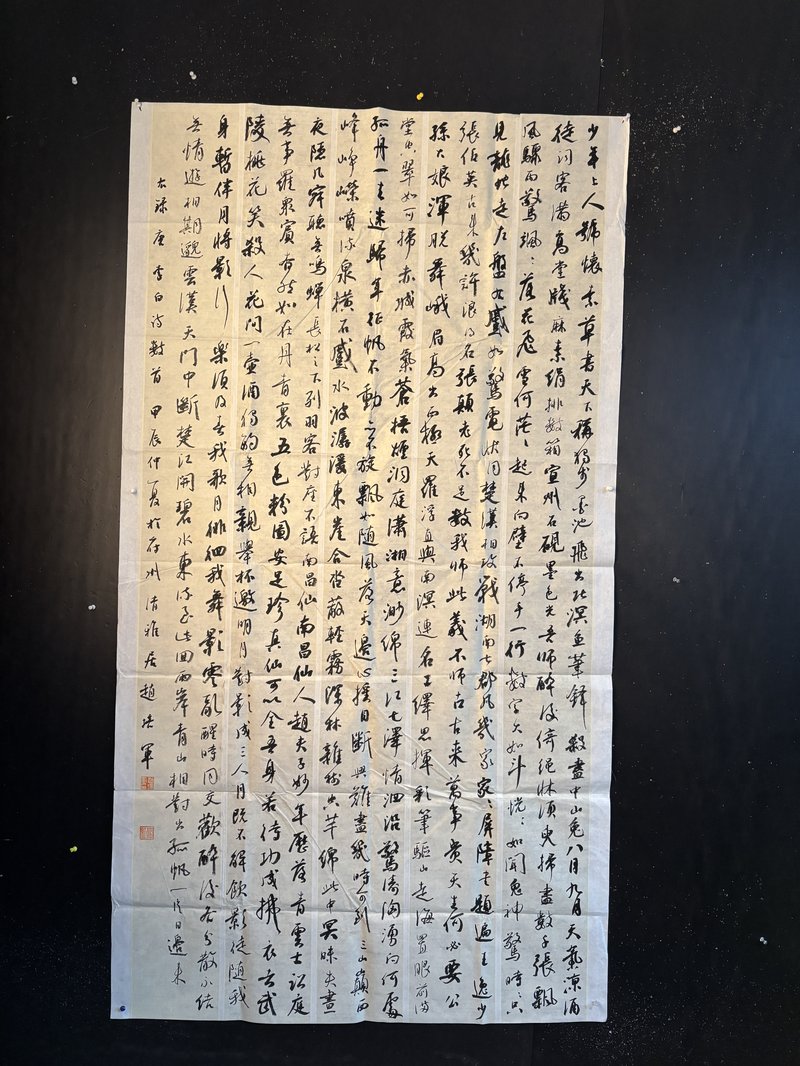 少年上人號懷素草書天下稱獨步墨池飛出北溟魚筆鋒殺盡中山兔八月九月天氣凉酒
徒詞客滿高堂牋麻素絹排數箱宣州石硯墨色光吾師醉後倚繩牀須臾掃盡數千張飄
風驟雨驚颯々落花飛雪何茫々起來向壁不停手一行數字大如斗恍々如聞鬼神驚時々只
見龍蛇走左盤右蹙如驚電狀同楚漢相攻戰湖南七郡凡幾家家々屏障書題遍王逸少
張伯英古來幾許浪得名張顛老死不足數我師此義不師古古來萬事貴天生何必要公
孫大娘渾脱舞峨眉高出西極天羅浮直與南溟連名工繹思揮彩筆驅山走海置眼前滿
堂空翠如可掃赤城霞氣蒼梧煙洞庭瀟湘意渺綿三江七澤情洄沿驚濤洶湧向何處
孤舟一去迷歸年征帆不動亦不旋飄如隨風落天邊心搖目斷興難盡幾時可到三山巔西
峰崢嶸噴流泉橫石蹙水波潺湲東崖合沓蔽輕霧深林雜樹空芊綿此中冥昧失晝
夜隱几寂聽無鳴蟬長松之下列羽客對座不語南昌仙南昌仙人趙夫子妙年歷落青雲士訟庭
無事羅衆賓杳然如在丹青裏五色粉圖安足珍真仙可以全吾身若待功成拂衣去武
陵桃花笑殺人花間一壺酒獨酌無相親舉杯邀明月對影成三人月既不解飲影徒隨我
身暫伴月將影行樂須及春我歌月徘徊我舞影零亂醒時同交歡醉後各分散永結
無情遊相期邈雲漢天門中斷楚江開碧水東流至此回兩岸青山相對出孤帆一片日邊來
右錄唐李白詩數首甲辰仲夏於州清雅居趙軍